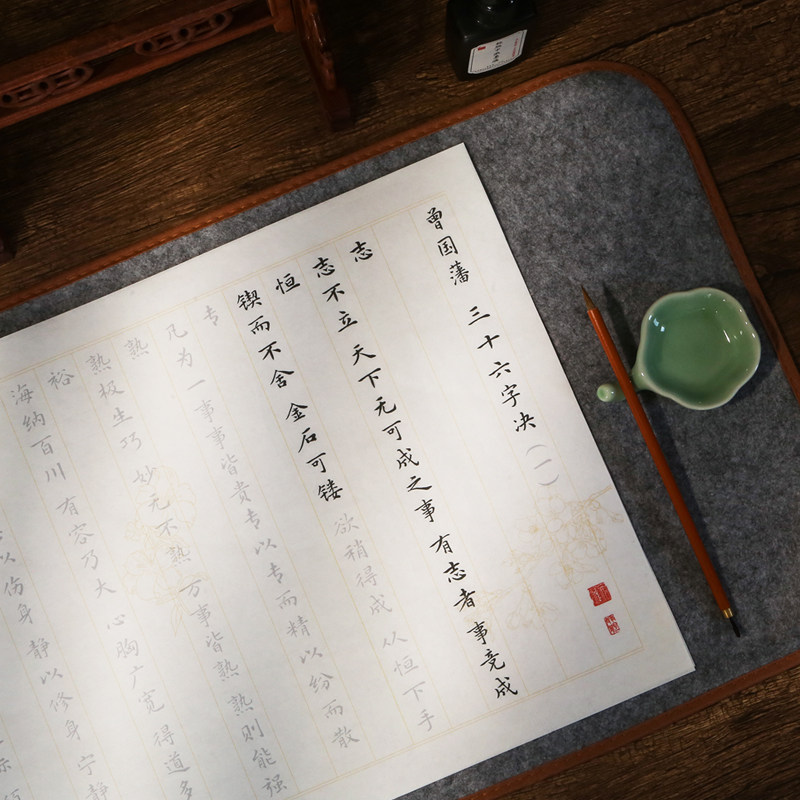 曾国藩 三十六字决（一）
志
志不立 天下无可成之事 有志者事竟成
恒
锲而不舍 金石可镂 欲稍得成 从恒下手
专
凡为一事事皆贵专 以专而精 以纷而散
熟
熟极生巧 妙无不熟 万事皆熟 熟则能强
裕
海纳百川 有容乃大 心胸广宽 得道多
以伤身 静以修身 宁静